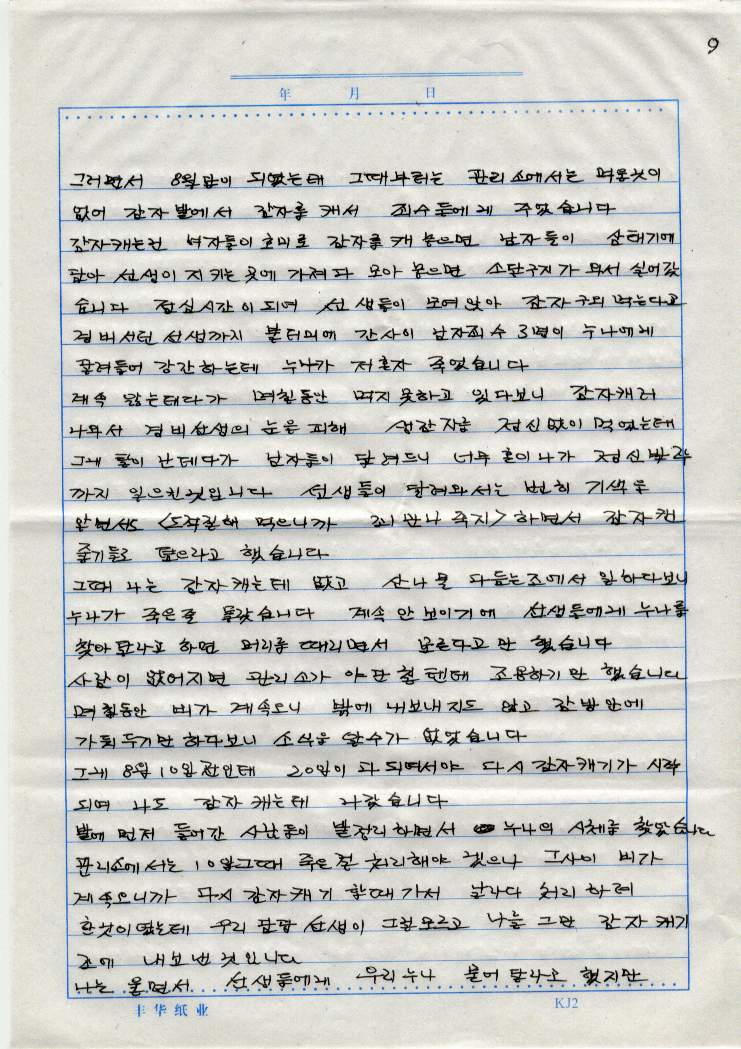 9
年 月 日
그러면서 8월달이 되였는데 그때부터는 관리소에서는 먹을것이
없어 감자 밭에서 감자를 캐서 죄수들에게 주었습니다
감자캐는건 녀자들이 호미로 감자를 캐 놓으면 남자들이 삼태기에
담아 선생이 지키는 곳에 가져다 모아 놓으면 소달구지가 와서 실어갔
습니다 점심시간이 되여 선생들이 모여앉아 감자 구워 먹는다고
경비서던 선생까지 불터의에 간사이 남자죄수 3명이 누나에게
달려들어 강간하는데 누나가 저혼자 죽었습니다
계속 앓는데다가 며칠동안 먹지못하고 있다보니 감자캐러
나와서 경비선생의 눈을 피해 생감자를 정신없이 먹었는데
그게 탈이 난데다가 남자들이 달려드니 너무 혼이나가 정신발작
까지 일으킨것입니다 선생들이 달려와서는 번히 기색을
알면서도 <도적질해 먹으니까 죄 만나 죽지> 하면서 감자캔
줄기들로 덮으라고 했습니다
그때 나는 감자캐는데 없고 산나물 다듬는조에서 일하다보니
누나가 죽은줄 몰랐습니다 계속 안보이기에 선생들에게 누나를
찾아달라고 하면 머리를 때리면서 모른다고만 했습니다
사람이 없어지면 관리소가 야단할텐데 조용하기만 했습니다
며칠동안 비가 계속오니 밖에 내보내지도 않고 감방안에
가둬두기만 하다보니 소식을 알수가 없었습니다
그게 8월 10일전인데 20일이 다 되여서야 다시 감자캐기가 시작
되여 나도 감자 캐는데 나갔습니다
밭에 먼저 들어간 사람들이 밭정리하면서 누나의 시체를 찾았습니다
관리소에서는 10일그때 죽은걸 처리해야 겠으나 그사이 비가
계속오니까 다시 감자캐기 할때가서 날라다 처리하려
한것이였는데 우리 담당 선생이 그걸모르고 나를 그만 감자캐기
조에 내보낸것입니다
나는 울면서 선생들에게 우리누나 묻어달라고 했지만
丰华纸业
KJ2